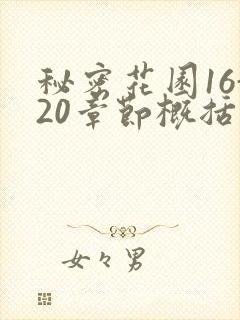 秘密花园16-
20章节概括
女々男